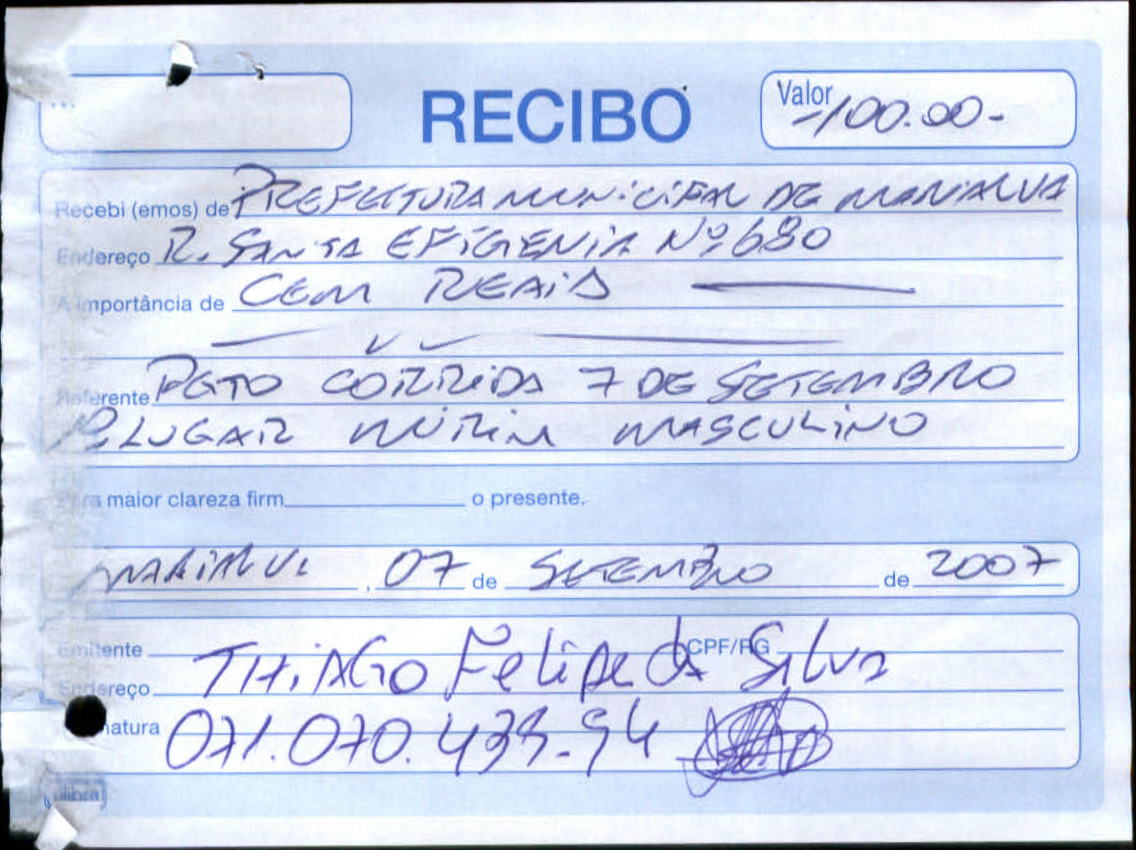 RECIBO
Valor -100.00-
Recebi (emos) de PREFEITURA MUNICIPAL DE MARIALVA
Endereço R. SANTA EFIGENIA Nº 680
A importância de CEM REAIS
Referente PGTO CORRIDA 7 DE SETEMBRO
LUGAR MIRIM MASCULINO
maior clareza firm o presente.
, 07 de SETEMBRO de 2007
Emitente CPF/RG
THIAGO Felipe da Silva
Endereço
natura 071.070.